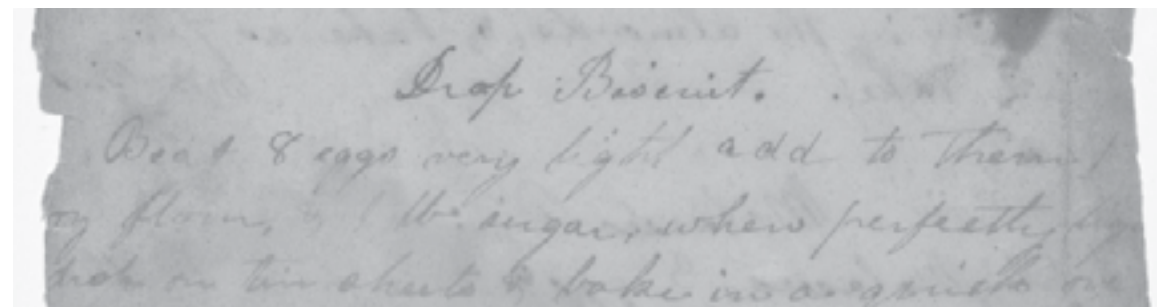 Drop Biscuit.
Beat 8 eggs very light add to them
flour, & 1 lb sugar, when perfectly
on tin sheets & bake in a quick